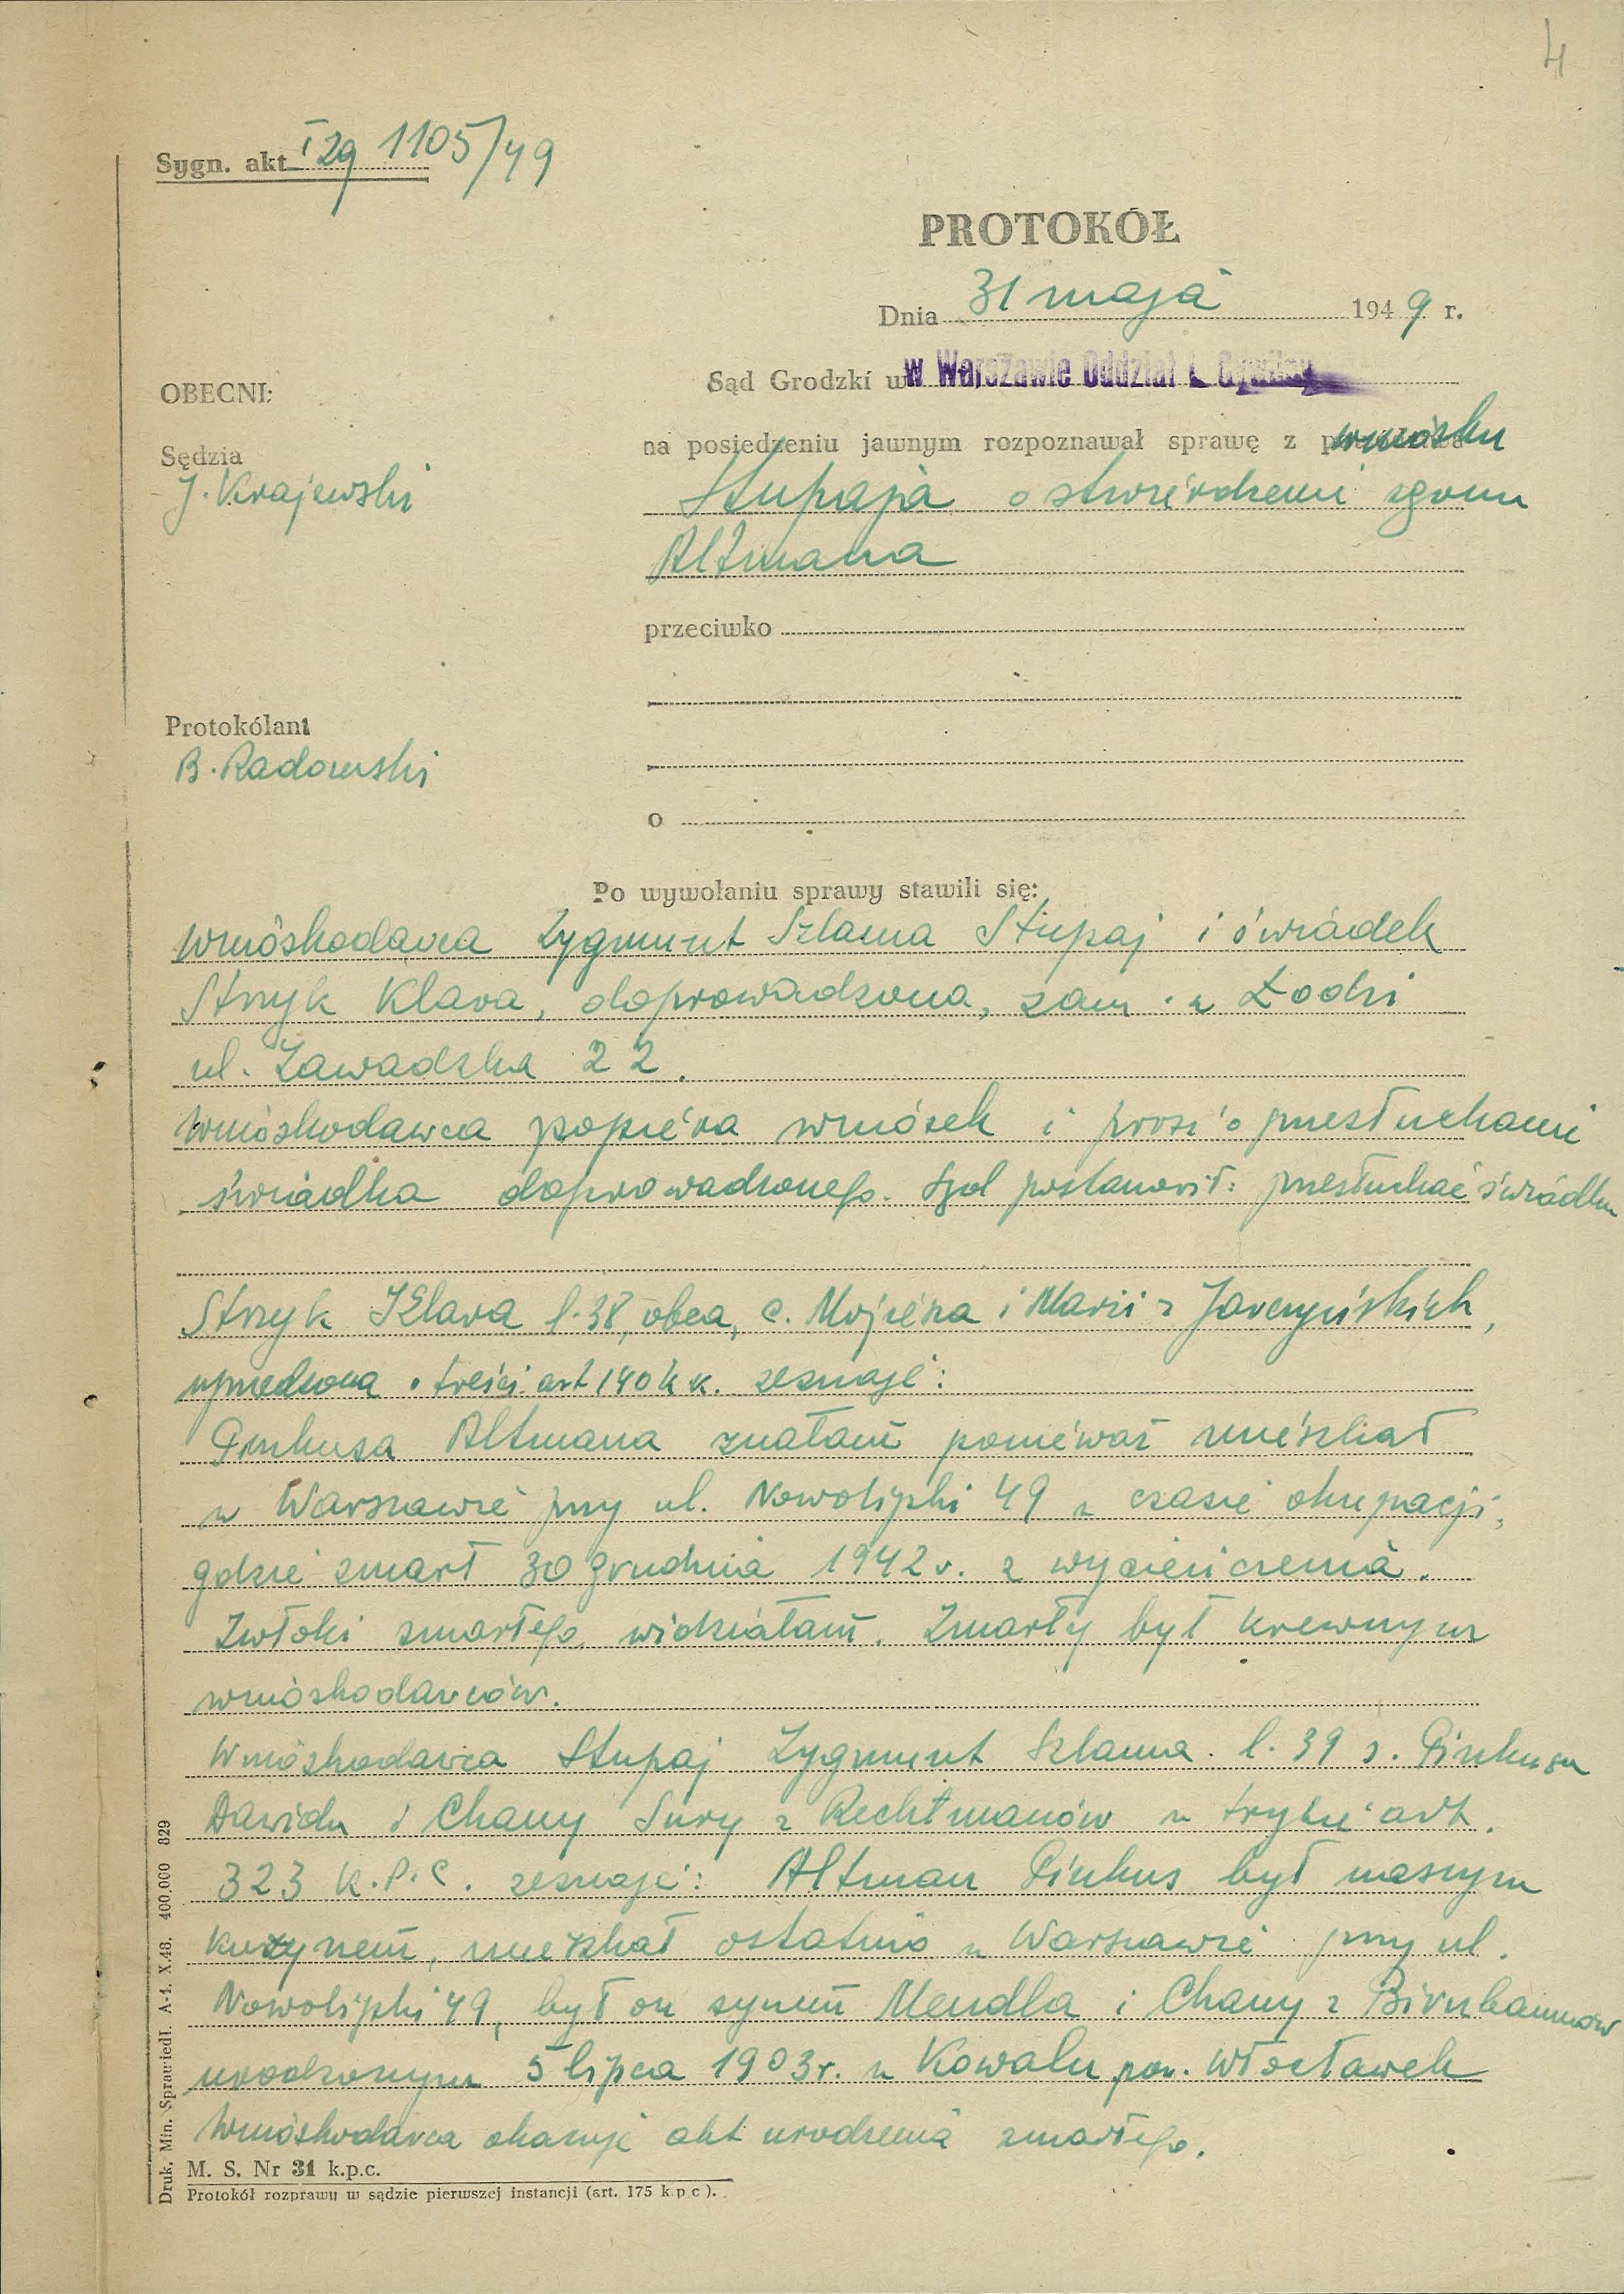 4
Sygn. akt I Zg 1105/49
PROTOKÓŁ
Dnia 31 maja 1949 r.
Sąd Grodzki w w Warszawie Oddział I. Cywilny
OBECNI:
na posiedzeniu jawnym rozpoznawał sprawę z wniosku
Sędzia
J. Krajewski
Stupaja o stwierdzenie zgonu
Altmana
przeciwko
Protokólant
B. Radowski
o
Po wywołaniu sprawy stawili się:
wnioskodawca Zygmunt Szlama Stupaj i świadek
Stryk Klara, doprowadzona, zam. w Łodzi
ul. Zawadzka 22.
Wnioskodawca popiera wniosek i prosi o przesłuchanie
świadka doprowadzonego. Sąd postanowił: przesłuchać świadka
Stryk Klara l. 38, obca, c. Mojżesza i Marii z Jarczyńskich,
uprzedzona o treści art 140 k.k. zeznaje:
Pinkusa Altmana znałam ponieważ mieszkał
w Warszawie przy ul. Nowolipki 49 w czasie okupacji,
gdzie zmarł 30 grudnia 1942 r. z wycieńczenia.
Zwłoki zmarłego widziałam. Zmarły był krewnym
wnioskodawców.
Wnioskodawca Stupaj Zygmunt Szlama. l. 39 s. Pinkusa
Dawida i Chany Sury z Rechtmanów w trybie art.
323 K.P.C. zeznaje: Altman Pinkus był naszym
kuzynem, mieszkał ostatnio w Warszawie przy ul.
Nowolipki 49, był on synem Mendla i Chany z Birnbaumów
urodzonym 5 lipca 1903 r. w Kowalu pow. Włocławek
Wnioskodawca okazuje akt urodzenia zmarłego.
M. S. Nr 31 k.p.c.
Protokół rozprawy w sądzie pierwszej instancji (art. 175 k.p.c.).
Druk. Min. Sprawiedl. A-4. X.48. 400.000 829